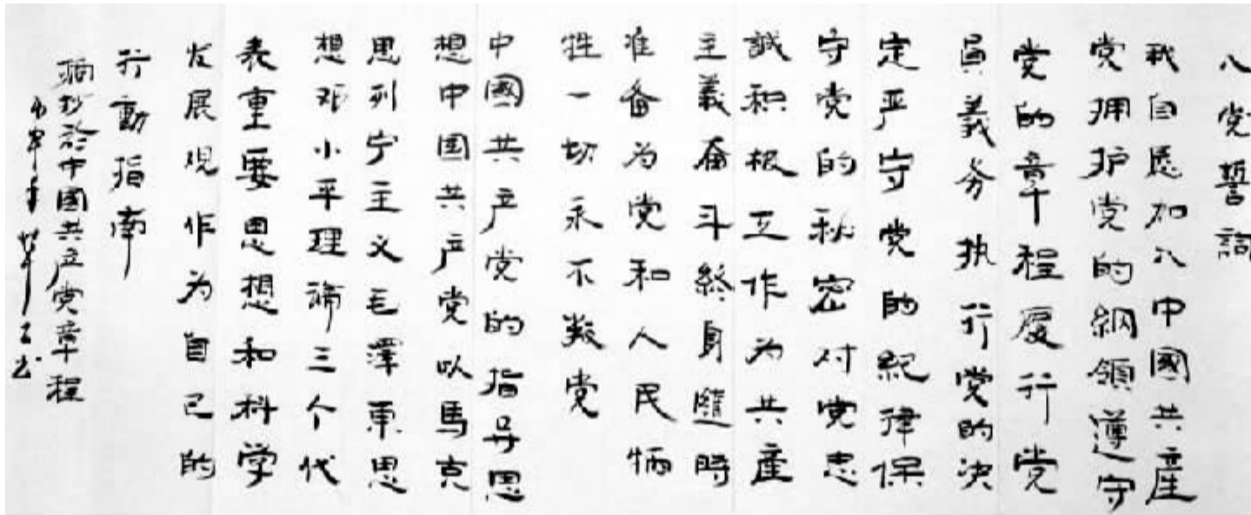 入党誓詞
我自愿加入中國共產
党拥护党的綱領遵守
党的章程履行党
員義务执行党的决
定严守党的紀律保
守党的秘密对党忠
誠积极工作为共產
主義奋斗終身隨時
准备为党和人民牺
牲一切永不叛党
中國共产党的指导思
想中国共产党以馬克
思列宁主义毛澤東思
想邓小平理論三个代
表重要思想和科学
发展观作为自己的
行動指南
摘抄於中國共产党章程